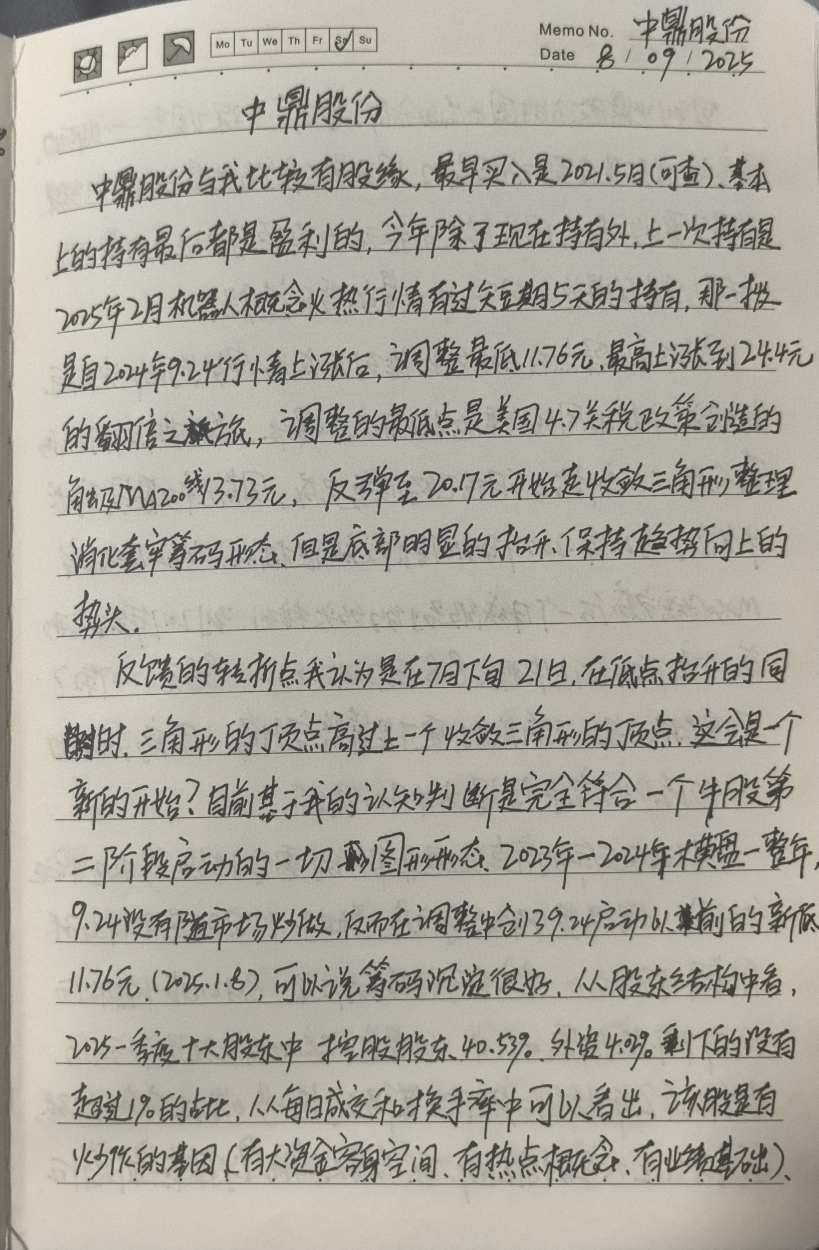 Mo Tu We Th Fr Sa Su
Memo No. 中鼎股份
Date 8 / 09 / 2025
中鼎股份
中鼎股份与我比较有股缘，最早买入是2021.5月(可查)、基本
上的持有最后都是盈利的，今年除了现在持有外，上一次持有是
2025年2月机器人概念火热行情有过短期5天的持有，那一拨
是自2024年9.24行情上涨后，调整最低11.76元，最高上涨到24.4元
的翻倍之旅，调整的最低点是美国4.7关税政策创造的
触及MA200线13.73元，反弹至20.17元开始走收敛三角形，整理
消化套牢筹码形态、但是底部明显的抬升、保持趋势向上的
势头．
反馈的转折点我认为是在7月下旬21日，在低点抬升的同
时，三角形的顶点高过上一个收敛三角形的顶点，这会是一个
新的开始？目前基于我的认知判断是完全符合一个牛股第
二阶段启动的一切图形形态、2023年—2024年横盘一整年，
9.24没有随市场炒做，反而在调整中创9.24启动以前的新低
11.76元(2025.1.8)，可以说筹码沉淀很好，从股东结构中看，
2025一季度十大股东中控股股东、40.53%、外资4.02%剩下的没有
超过1%的占比，从每日成交和换手率中可以看出，该股是有
炒作的基因(有大资金容身空间、有热点概念、有业绩基础)、